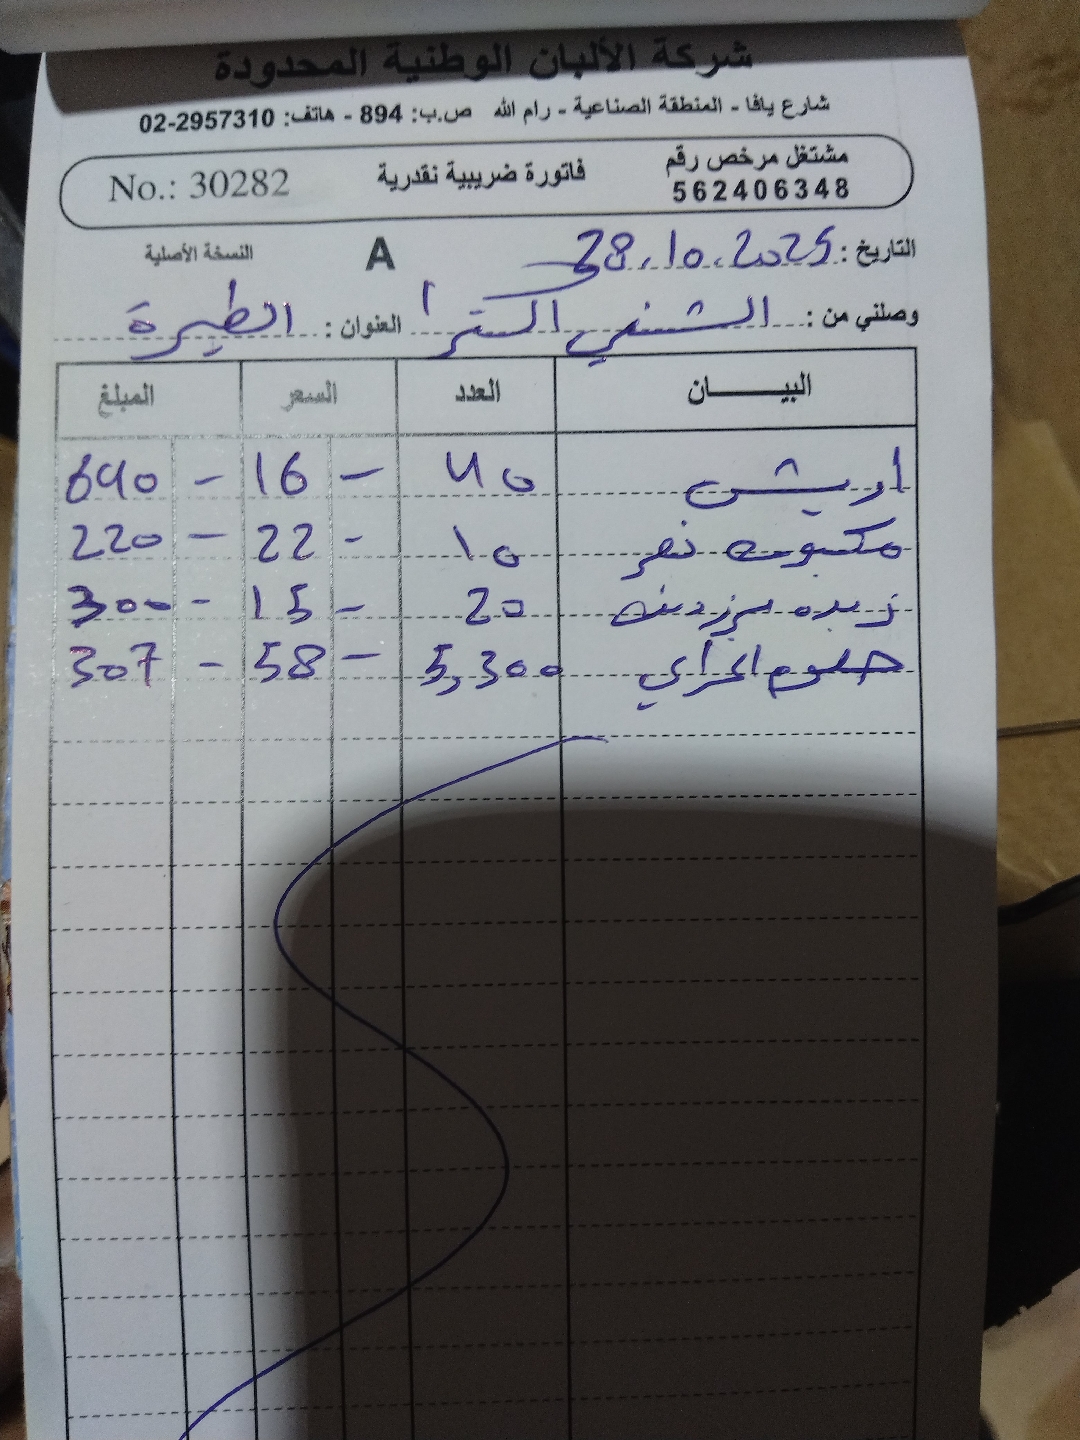 شركة الألبان الوطنية المحدودة
شارع يافا - المنطقة الصناعية - رام الله ص.ب: 894 - هاتف: 02-2957310
مشتغل مرخص رقم 562406348
فاتورة ضريبية نقدية
No.: 30282
التاريخ: 28.10.2025
A
النسخة الأصلية
وصلني من: الشني اكسترا العنوان: الطيرة
البيـــان العدد السعر المبلغ
40 16 - 640 -
10 22 - 220 -
زبده 20 15 - 300 -
حلوم 5,300 58 - 307 -